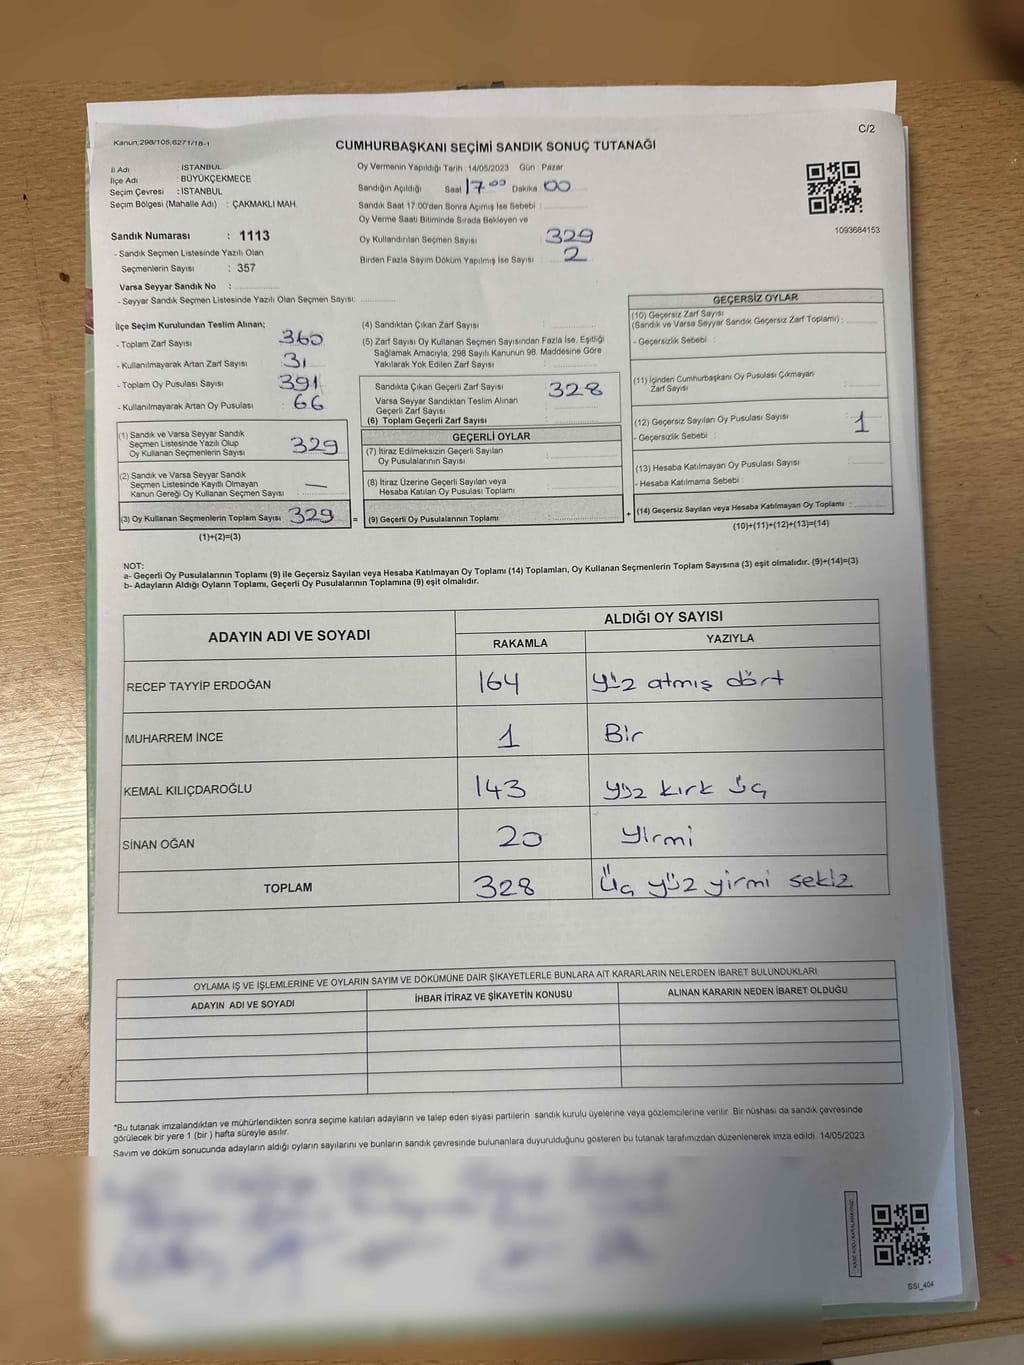 Kanun:298/105,6271/18-1
C/2
CUMHURBAŞKANI SEÇİMİ SANDIK SONUÇ TUTANAĞI
İl Adı : İSTANBUL
İlçe Adı : BÜYÜKÇEKMECE
Seçim Çevresi : İSTANBUL
Seçim Bölgesi (Mahalle Adı) : ÇAKMAKLI MAH.
Sandık Numarası : 1113
- Sandık Seçmen Listesinde Yazılı Olan
Seçmenlerin Sayısı : 357
Varsa Seyyar Sandık No :
- Seyyar Sandık Seçmen Listesinde Yazılı Olan Seçmen Sayısı:
Oy Vermenin Yapıldığı Tarih : 14/05/2023 Gün : Pazar
Sandığın Açıldığı Saat 17:00 Dakika 00
Sandık Saat 17:00'den Sonra Açmış İse Sebebi :
Oy Verme Saati Bitiminde Sırada Bekleyen ve
Oy Kullandırılan Seçmen Sayısı 329
Birden Fazla Sayım Döküm Yapılmış İse Sayısı : 2
1093684153
İlçe Seçim Kurulundan Teslim Alınan;
- Toplam Zarf Sayısı : 360
- Kullanılmayarak Artan Zarf Sayısı : 31
- Toplam Oy Pusulası Sayısı : 391
- Kullanılmayarak Artan Oy Pusulası : 66
(1) Sandık ve Varsa Seyyar Sandık
Seçmen Listesinde Yazılı Olup
Oy Kullanan Seçmenlerin Sayısı 329
(2) Sandık ve Varsa Seyyar Sandık
Seçmen Listesinde Kayıtlı Olmayan
Kanun Gereği Oy Kullanan Seçmen Sayısı : —
(3) Oy Kullanan Seçmenlerin Toplam Sayısı 329 =
(1)+(2)=(3)
(4) Sandıktan Çıkan Zarf Sayısı :
(5) Zarf Sayısı Oy Kullanan Seçmen Sayısından Fazla İse, Eşitliği
Sağlamak Amacıyla; 298 Sayılı Kanunun 98. Maddesine Göre
Yakılarak Yok Edilen Zarf Sayısı :
Sandıkta Çıkan Geçerli Zarf Sayısı 328
Varsa Seyyar Sandıktan Teslim Alınan
Geçerli Zarf Sayısı :
(6) Toplam Geçerli Zarf Sayısı :
GEÇERLİ OYLAR
(7) İtiraz Edilmeksizin Geçerli Sayılan
Oy Pusulalarının Sayısı :
(8) İtiraz Üzerine Geçerli Sayılan veya
Hesaba Katılan Oy Pusulası Toplamı :
(9) Geçerli Oy Pusulalarının Toplamı : +
GEÇERSİZ OYLAR
(10) Geçersiz Zarf Sayısı
(Sandık ve Varsa Seyyar Sandık Geçersiz Zarf Toplamı) :
- Geçersizlik Sebebi :
(11) İçinden Cumhurbaşkanı Oy Pusulası Çıkmayan
Zarf Sayısı :
(12) Geçersiz Sayılan Oy Pusulası Sayısı : 1
- Geçersizlik Sebebi :
(13) Hesaba Katılmayan Oy Pusulası Sayısı :
- Hesaba Katılmama Sebebi :
(14) Geçersiz Sayılan veya Hesaba Katılmayan Oy Toplamı :
(10)+(11)+(12)+(13)=(14)
NOT:
a- Geçerli Oy Pusulalarının Toplamı (9) ile Geçersiz Sayılan veya Hesaba Katılmayan Oy Toplamı (14) Toplamları, Oy Kullanan Seçmenlerin Toplam Sayısına (3) eşit olmalıdır. (9)+(14)=(3)
b- Adayların Aldığı Oyların Toplamı, Geçerli Oy Pusulalarının Toplamına (9) eşit olmalıdır.
ADAYIN ADI VE SOYADI ALDIĞI OY SAYISI
RAKAMLA YAZIYLA
RECEP TAYYİP ERDOĞAN 164 yüz atmış dört
MUHARREM İNCE 1 Bir
KEMAL KILIÇDAROĞLU 143 yüz kırk üç
SİNAN OĞAN 20 yirmi
TOPLAM 328 Üç yüz yirmi sekiz
OYLAMA İŞ VE İŞLEMLERİNE VE OYLARIN SAYIM VE DÖKÜMÜNE DAİR ŞİKAYETLERLE BUNLARA AİT KARARLARIN NELERDEN İBARET BULUNDUKLARI
ADAYIN ADI VE SOYADI İHBAR İTİRAZ VE ŞİKAYETİN KONUSU ALINAN KARARIN NEDEN İBARET OLDUĞU
*Bu tutanak imzalandıktan ve mühürlendikten sonra seçime katılan adayların ve talep eden siyasi partilerin sandık kurulu üyelerine veya gözlemcilerine verilir. Bir nüshası da sandık çevresinde
görülecek bir yere 1 (bir ) hafta süreyle asılır.
Sayım ve döküm sonucunda adayların aldığı oyların sayılarını ve bunların sandık çevresinde bulunanlara duyurulduğunu gösteren bu tutanak tarafımızdan düzenlenerek imza edildi. 14/05/2023
SSI_404